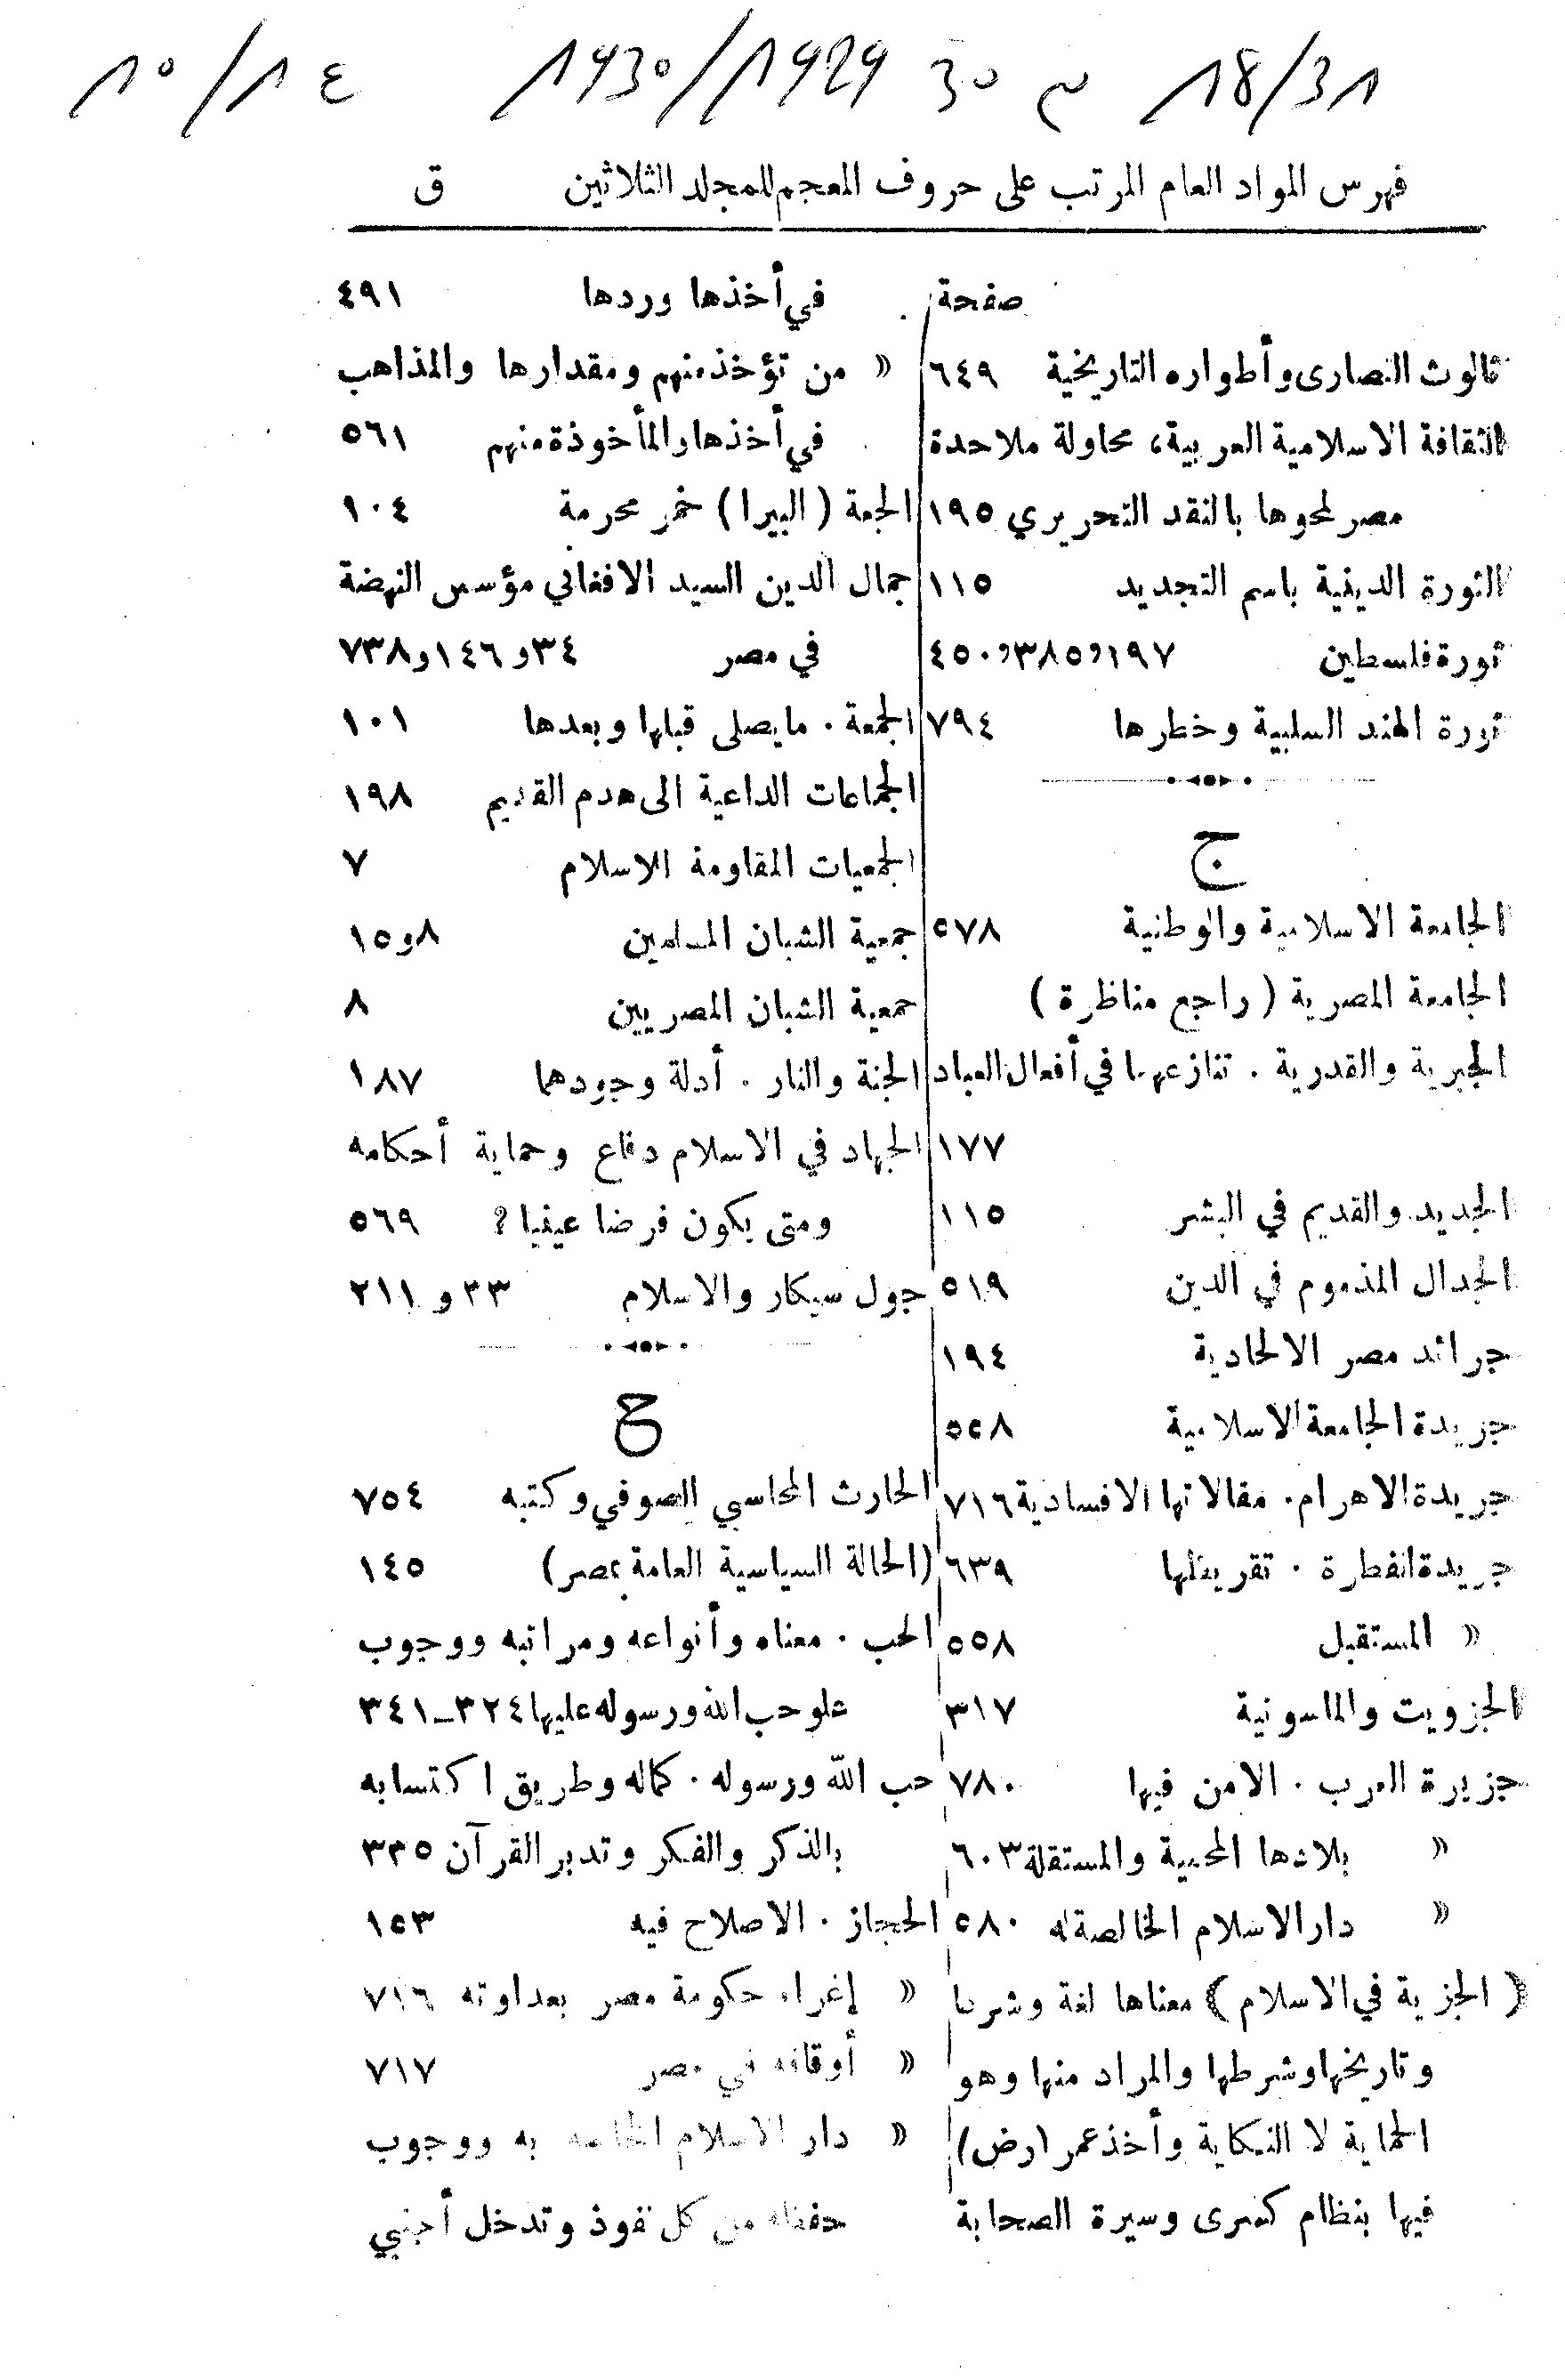 18/31 م 30 1930/1929 ع 10/1
فهرس المواد العام المرتب على حروف المعجم للمجلد الثلاثين ق
صفحة
ثالوث النصارى وأطواره التاريخية ٦٤٩
الثقافة الاسلامية العربية، محاولة ملاحدة
مصر لمحوها بالنقد التحريري ١٩٥
الثورة الدينية باسم التجديد ١١٥
ثورة فلسطين ١٩٧و٣٨٥و٤٥٠
ثورة الهند السلبية وخطرها ٧٩٤
ج
الجامعة الاسلامية والوطنية ٥٧٨
الجامعة المصرية ( راجع مناظرة )
الجبرية والقدرية . تنازعهما في أفعال العباد
١٧٧
الجديد والقديم في البشر ١١٥
الجدال المذموم في الدين ٥١٩
جرائد مصر الالحادية ١٩٤
جريدة الجامعة الاسلامية ٥٥٨
جريدة الاهرام. مقالاتها الافسادية ٧١٦
جريدة الفطرة . تقريظها ٦٣٩
« المستقبل ٥٥٨
الجزويت والماسونية ٣١٧
جزيرة العرب . الامن فيها ٧٨٠
« بلادها المحمية والمستقلة ٦٠٣
« دار الاسلام الخالصة له ٥٨٠
( الجزية في الاسلام ) معناها لغة وشرعا
وتاريخها وشرطها والمراد منها وهو
الحماية لا النكاية وأخذ عمر (رض)
فيها بنظام كسرى وسيرة الصحابة
في أخذها وردها ٤٩١
« من تؤخذ منهم ومقدارها والمذاهب
في أخذها والمأخوذة منهم ٥٦١
الجعة ( البيرا ) خمر محرمة ١٠٤
جمال الدين السيد الافغاني مؤسس النهضة
في مصر ٣٤ و١٤٦ و٧٣٨
الجمعة . ما يصلى قبلها وبعدها ١٠١
الجماعات الداعية الى هدم القديم ١٩٨
الجمعيات المقاومة للاسلام ٧
جمعية الشبان المسلمين ٨و١٥
جمعية الشبان المصريين ٨
الجنة والنار . أدلة وجودهما ١٨٧
الجهاد في الاسلام دفاع وحماية أحكامه
ومتى يكون فرضا عينيا ؟ ٥٦٩
جول سيكار والاسلام ٣٣ و ٢١١
ح
الحارث المحاسبي الصوفي وكتبه ٧٥٤
(الحالة السياسية العامة بمصر) ١٤٥
الحب . معناه وأنواعه ومراتبه ووجوب
علو حب الله ورسوله عليها ٣٢٤ــ٣٤١
حب الله ورسوله . كماله وطريق اكتسابه
بالذكر والفكر وتدبر القرآن ٣٣٥
الحجاز . الاصلاح فيه ١٥٣
« إغراء حكومة مصر بعداوته ٧١٦
« أوقافه في مصر ٧١٧
« دار الاسلام الخاصة به ووجوب
حفظه من كل نفوذ وتدخل أجنبي